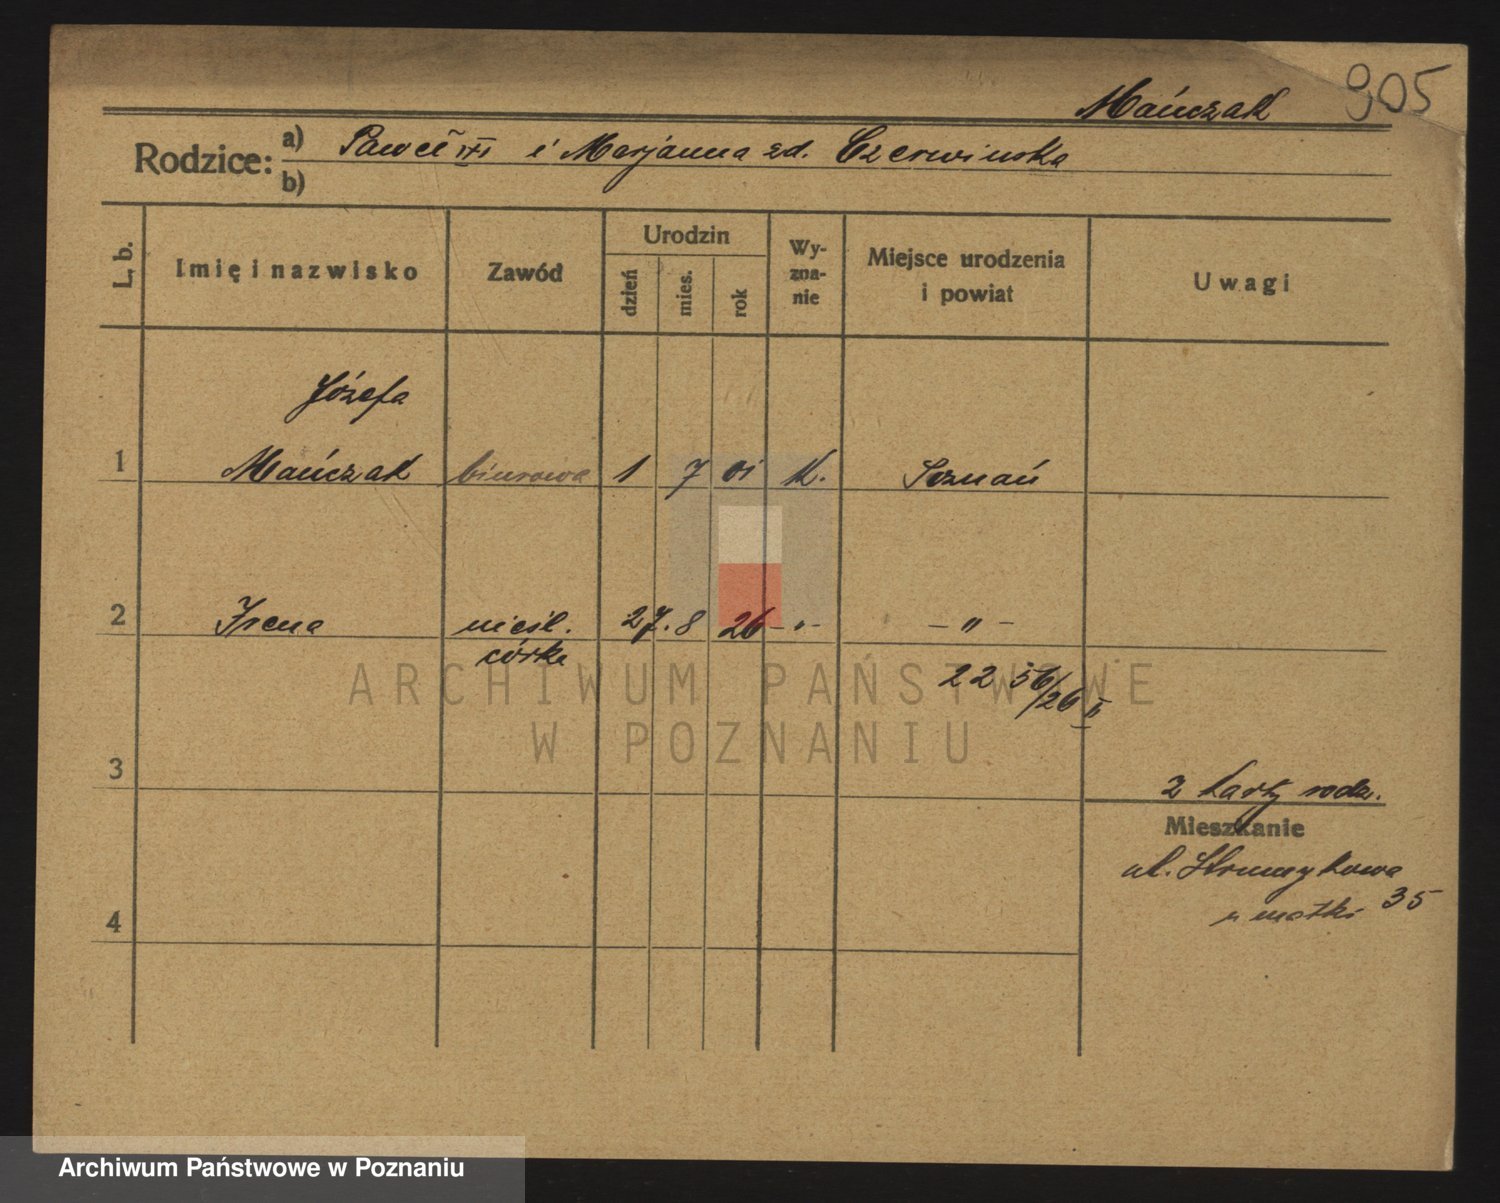 905
Mańczak
Rodzice:
a) Paweł III i Marjanna zd. Czerwińska
b)
L. b.
Imię i nazwisko
Zawód
Urodzin
dzień
mies.
rok
Wy-
zna-
nie
Miejsce urodzenia
i powiat
Uwagi
Józefa
1 Mańczak biurowa 1 7 01 K. Poznań
2 Irena nieśl. 27. 8 26 -"- -"-
córka
22 56/26 II
3
z karty rodz.
Mieszkanie
ul. Strumykowa
u matki 35
4
ARCHIWUM PAŃSTWOWE
W POZNANIU
Archiwum Państwowe w Poznaniu